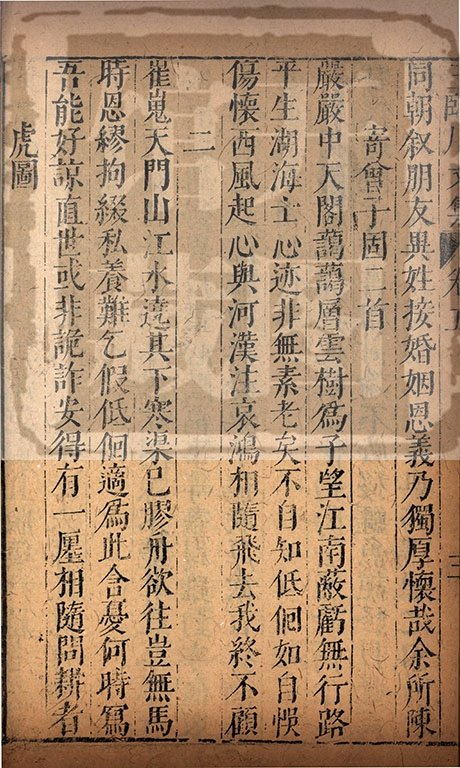 同朝叙朋友異姓接婚姻恩義乃獨厚懷哉余所陳
寄曾子固二首
嚴嚴中天閣藹藹層雲樹為子望江南蔽虧無行路
平生湖海士心迹非無素老矣不自知低佪如自悮
傷懷西風起心與河漢注哀鴻相隨飛去我終不顧
二
崔嵬天門山江水遶其下寒渠已膠舟欲往豈無馬
時恩繆拘綴私養難乞假低佪適為此含憂何時寫
吾能好諒直世或非詭詐安得有一廛相隨問耕者
虎圖